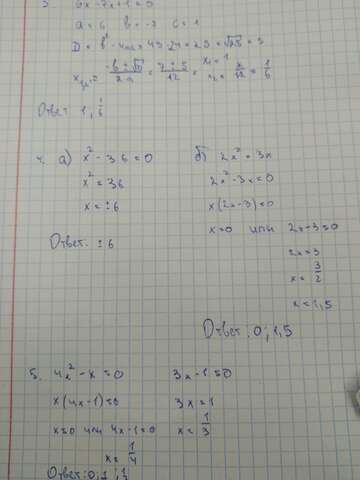 6x²-7x+1=0
a=6 b=-7 c=1
D=b²-4ac=49-24=25=√25=5
x₁,₂= (-b±√D)/2a = (7±5)/12 = x₁=1
x₂= 2/12 = 1/6
Ответ 1, 1/6
4. а) x²-36=0
x²=36
x=±6
Ответ: ±6
б) 2x²=3x
2x²-3x=0
x(2x-3)=0
x=0 или 2x-3=0
2x=3
x= 3/2
x=1,5
Ответ: 0; 1,5
5. 4x²-x=0
x(4x-1)=0
x=0 или 4x-1=0
x= 1/4
3x-1=0
3x=1
x= 1/3
Ответ: 0,